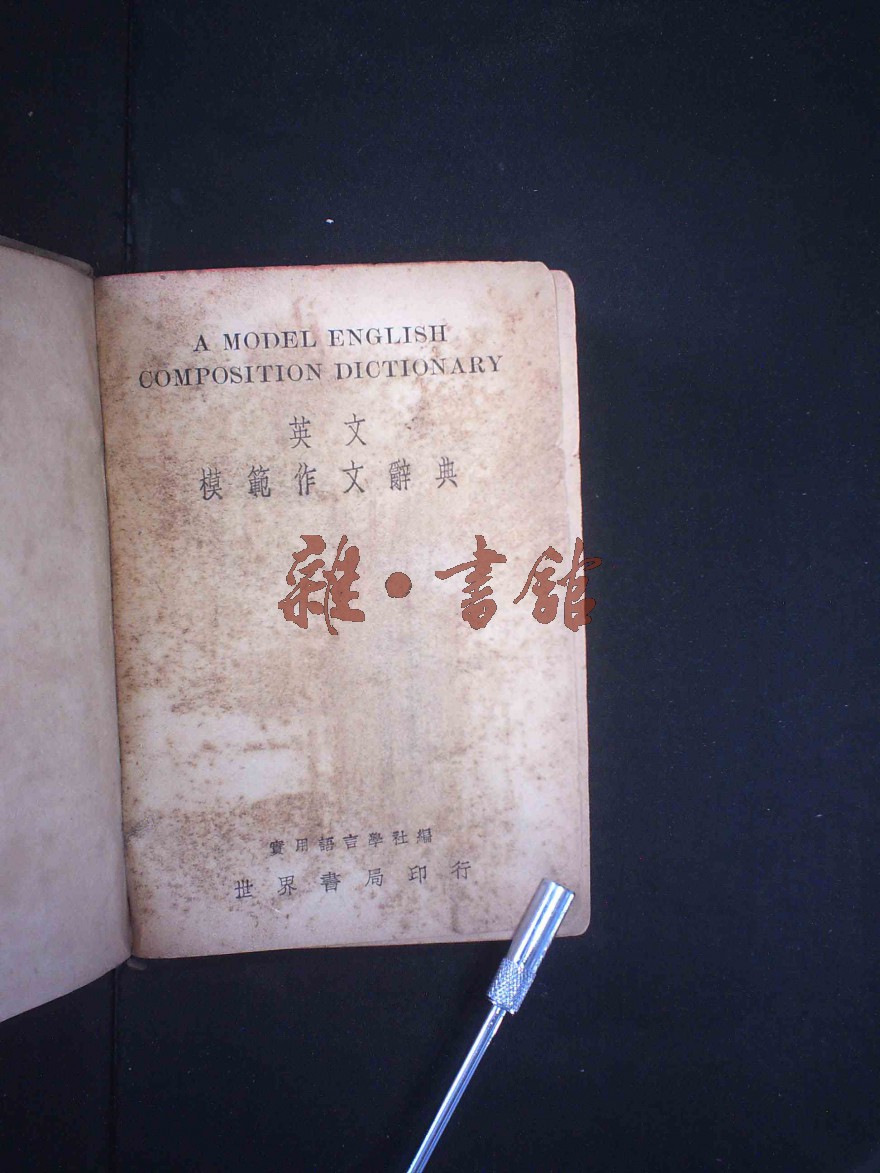 A MODEL ENGLISH
COMPOSITION DICTIONARY
英文
模範作文辭典
雜·書館
實用語言學社編
世界書局印行